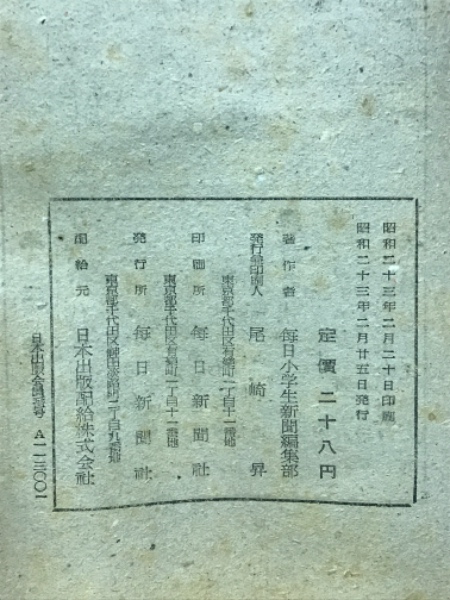 昭和二十三年二月二十日印刷
昭和二十三年二月廿五日発行
定價 二十八円
著作者 毎日小学生新聞編集部
発行兼印刷人 尾崎昇
東京都千代田区有楽町一丁目十一番地
印刷所 毎日新聞社
東京都千代田区有楽町一丁目十一番地
発行所 毎日新聞社
東京都千代田区神田淡路町二丁目九番地
配給元 日本出版配給株式会社
A一一三〇〇一